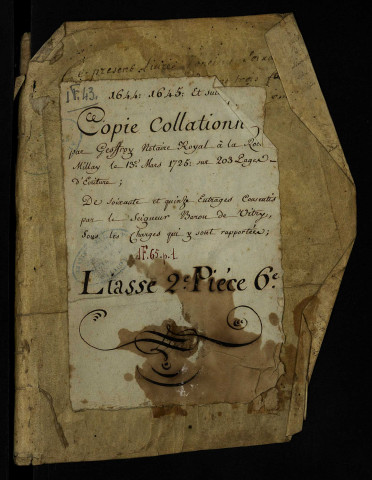 present
1F.43. 1644: 1645: Et
Copie Collationn
par Geoffroy Notaire Royal à la
Millay le 13e. Mars 1726: sur 203 Pages
d'Ecriture;
De soixante et quinze Entrages Consentis
par le Seigneur Baron de Vitry,
sous les Charges qui y sont rapportées;
1F.65.p.1
Liasse 2e Piéce 6e